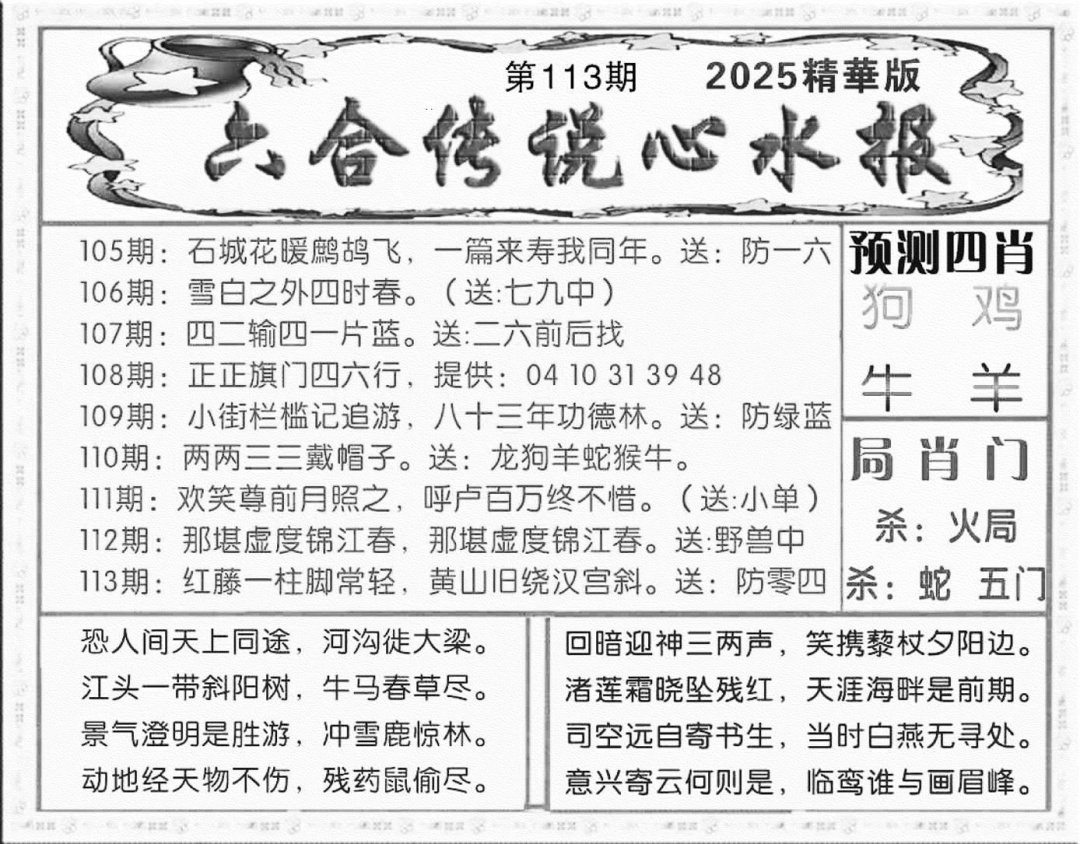 第113期 2025精華版
六合传说心水报
105期：石城花暖鹧鸪飞，一篇来寿我同年。送：防一六
106期：雪白之外四时春。（送:七九中）
107期：四二输四一片蓝。送:二六前后找
108期：正正旗门四六行，提供：04 10 31 39 48
109期：小街栏槛记追游，八十三年功德林。送：防绿蓝
110期：两两三三戴帽子。送：龙狗羊蛇猴牛。
111期：欢笑尊前月照之，呼卢百万终不惜。（送:小单）
112期：那堪虚度锦江春，那堪虚度锦江春。送:野兽中
113期：红藤一柱脚常轻，黄山旧绕汉宫斜。送：防零四
预测四肖
狗 鸡
牛 羊
局肖门
杀：火局
杀：蛇 五门
恐人间天上同途，河沟徙大梁。
江头一带斜阳树，牛马春草尽。
景气澄明是胜游，冲雪鹿惊林。
动地经天物不伤，残药鼠偷尽。
回暗迎神三两声，笑携藜杖夕阳边。
渚莲霜晓坠残红，天涯海畔是前期。
司空远自寄书生，当时白燕无寻处。
意兴寄云何则是，临鸾谁与画眉峰。